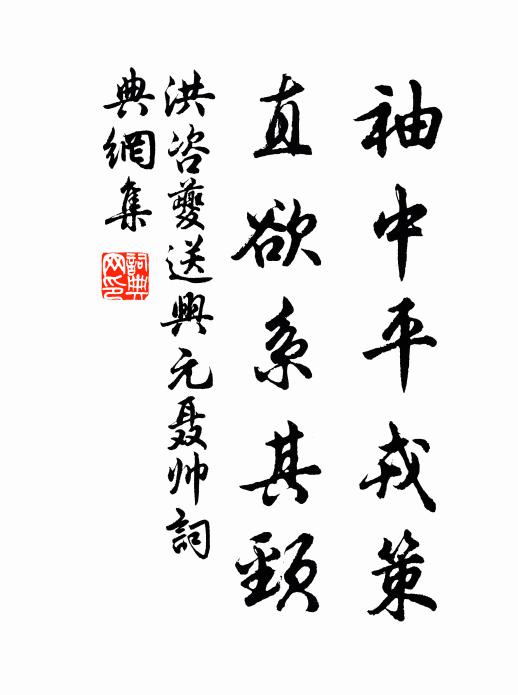 袖中平戎策
直欲系其頸
洪咨夔送興元聂帅詞
典網集
詞典网印